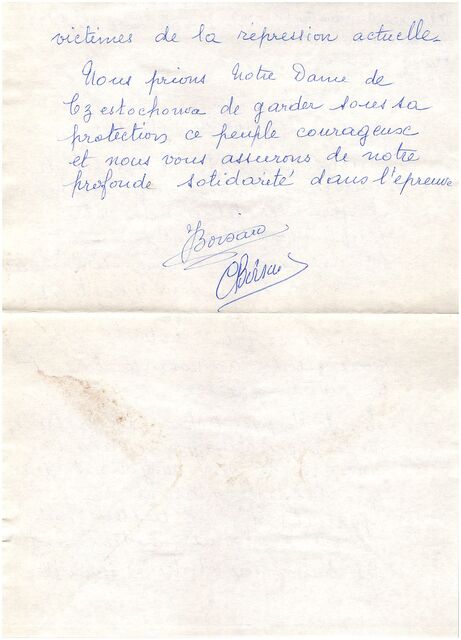 victimes de la répression actuelle.
Nous prions Notre Dame de
Czestochowa de garder sous sa
protection ce peuple courageux
et nous vous assurons de notre
profonde solidarité dans l'épreuve